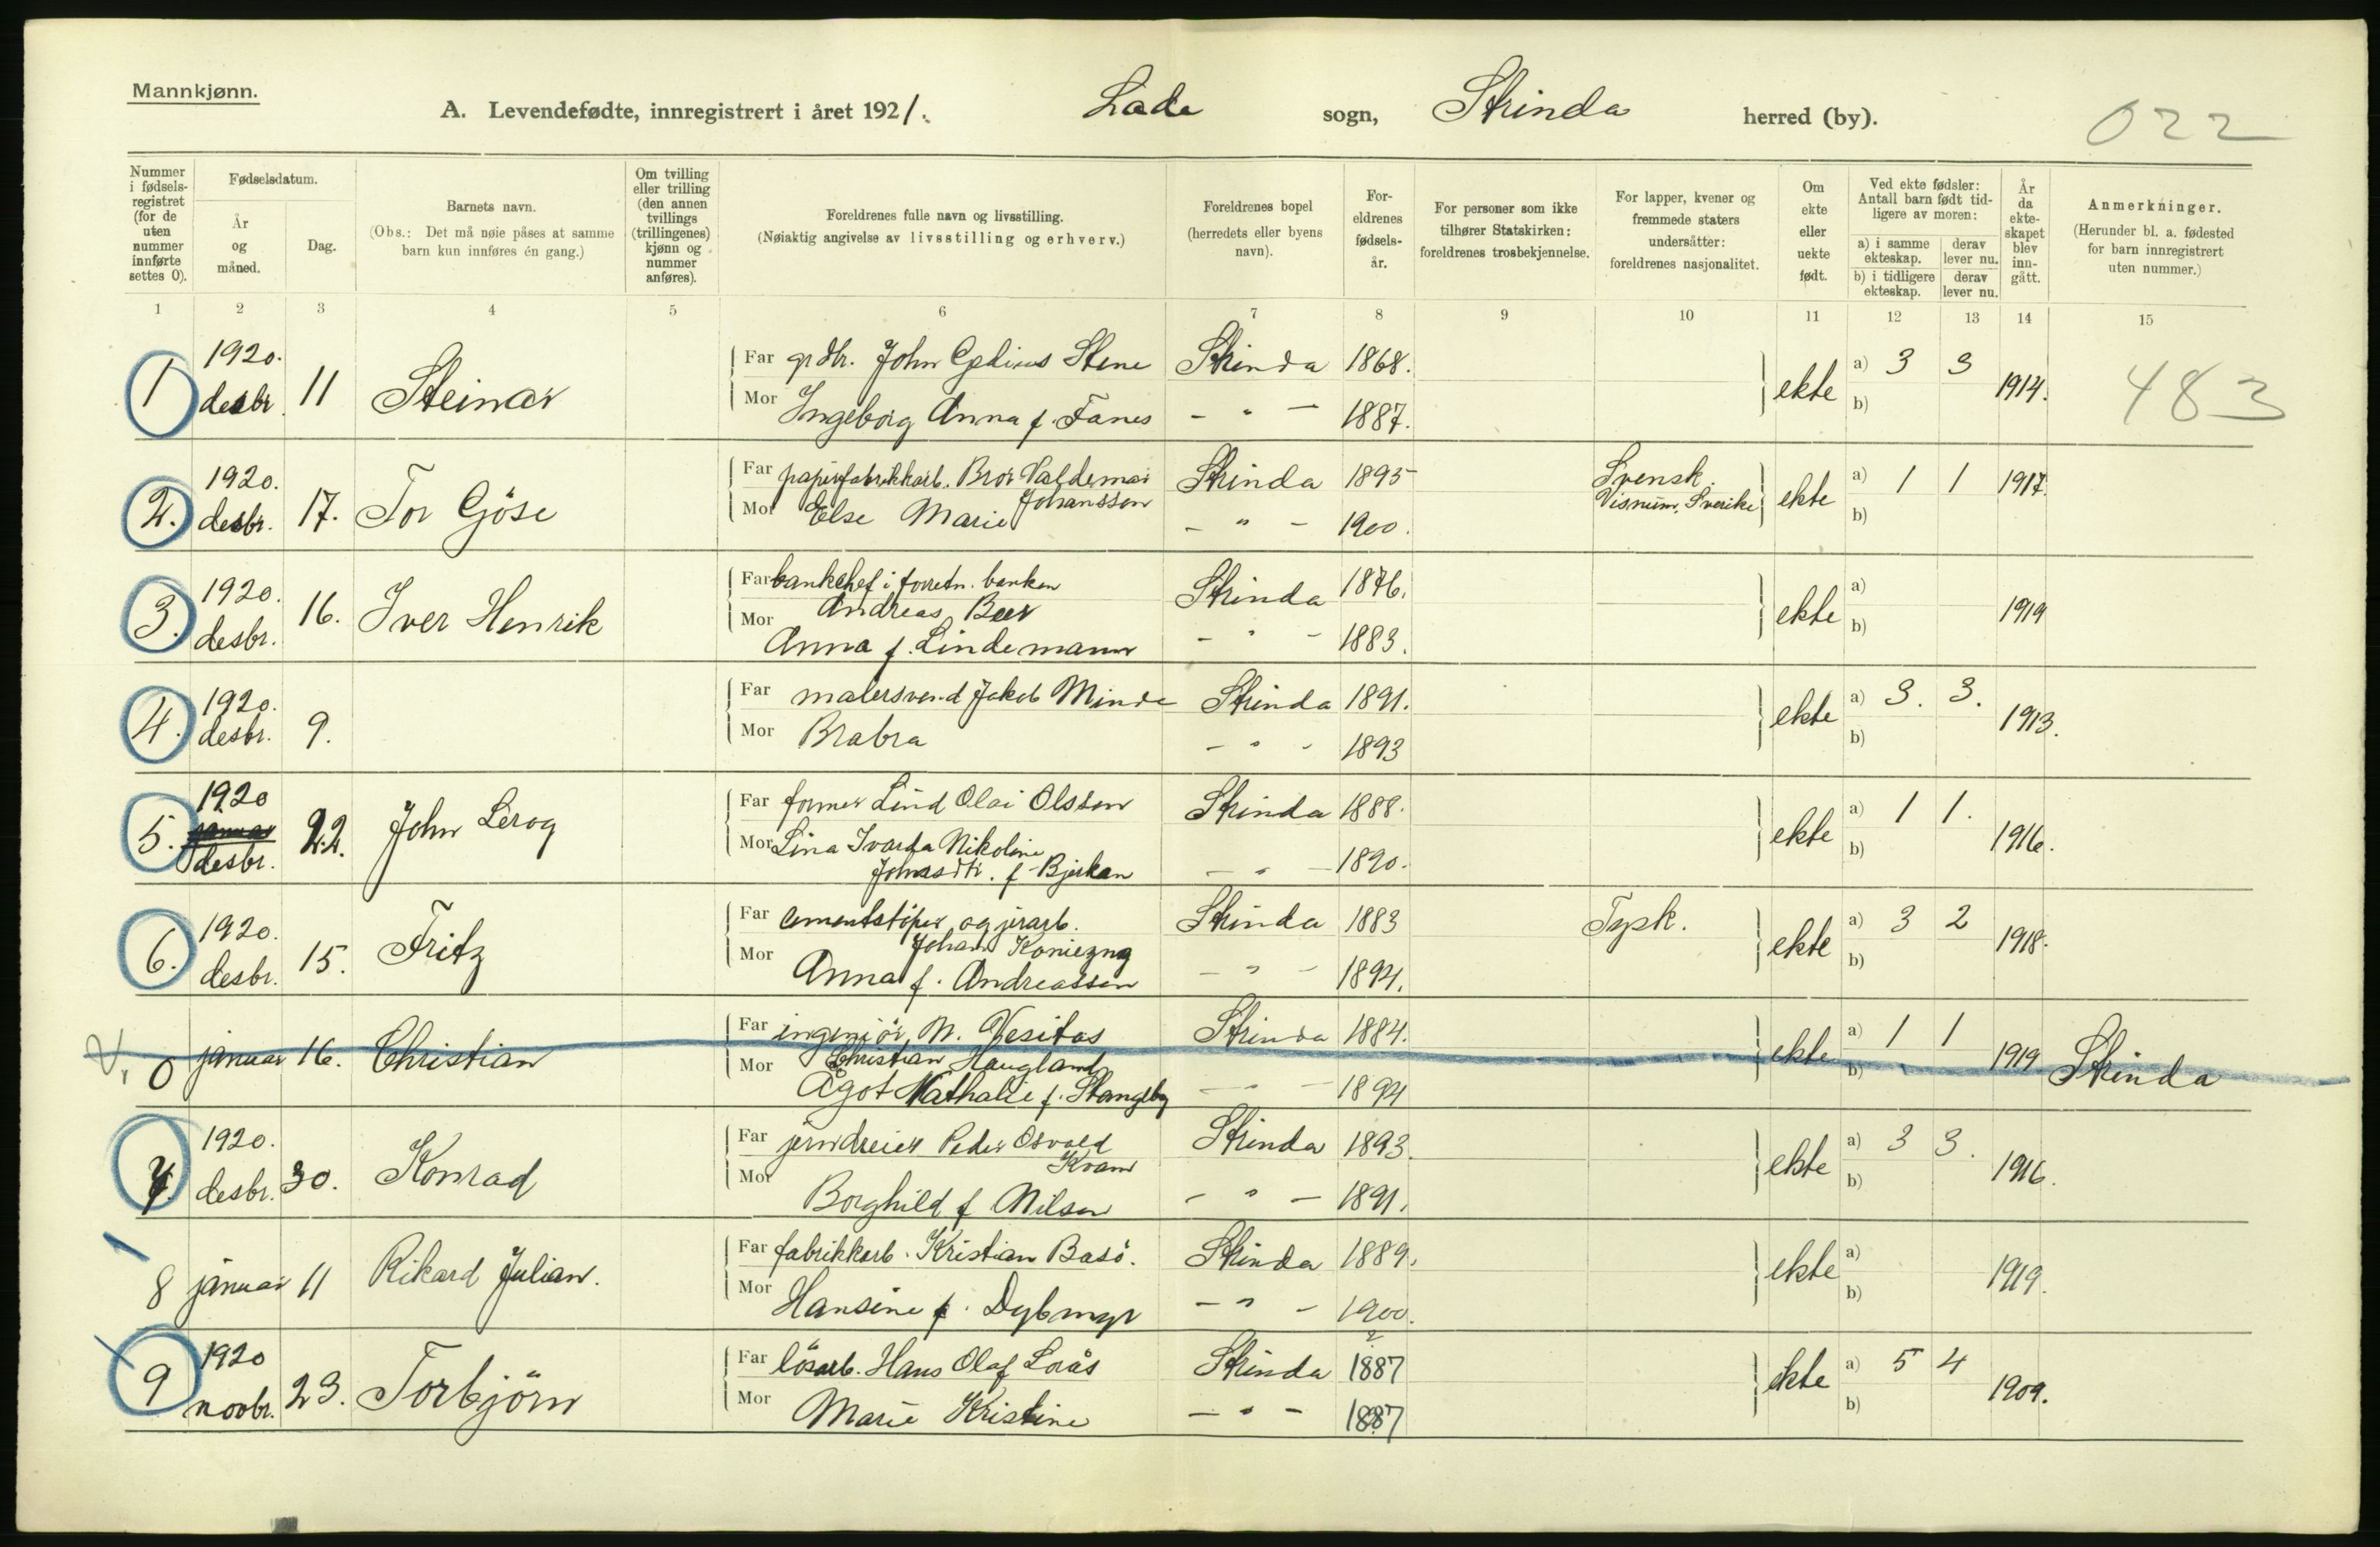 Mannkjønn.
A. Levendefødte, innregistrert i året 1921. Lade sogn, Strinda herred (by). 022
Nummer i fødsels-registret (for de uten nummer innførte settes 0).
Fødselsdatum.
År og måned.
Dag.
Barnets navn.
(Obs.: Det må nøie påses at samme barn kun innføres én gang.)
Om tvilling eller trilling (den annen tvillings (trillingenes) kjønn og nummer anføres).
Foreldrenes fulle navn og livsstilling.
(Nøiaktig angivelse av livsstilling og erhverv.)
Foreldrenes bopel (herredets eller byens navn).
For-eldrenes fødsels-år.
For personer som ikke tilhører Statskirken: foreldrenes trosbekjennelse.
For lapper, kvener og fremmede staters undersåtter: foreldrenes nasjonalitet.
Om ekte eller uekte født.
Ved ekte fødsler: Antall barn født tid-ligere av moren:
a) i samme ekteskap. derav lever nu.
b) i tidligere ekteskap. derav lever nu.
År da ekte-skapet blev inn-gått.
Anmerkninger.
(Herunder bl. a. fødested for barn innregistrert uten nummer.)
1 2 3 4 5 6 7 8 9 10 11 12 13 14 15
1 1920. desbr. 11 Steinar Far grdbr. John Stene Strinda 1868. ekte a) 3 3 1914. 483
Mor Ingeborg Anna f. Fanes - " - 1887. b)
2. 1920. desbr. 17. Tor Göse Far papirfabrikkarb. Bror Valdemar Johansson Strinda 1895 Svensk. Visnum, Sverike ekte a) 1 1 1917.
Mor Else Marie - " - 1900. b)
3. 1920. desbr. 16. Iver Henrik Far bankchef i forretn. banken Andreas Beer Strinda 1876. ekte a) 1919
Mor Anna f. Lindemann - " - 1883. b)
4. 1920. desbr. 9. Far malersvend Jakob Minde Strinda 1891. ekte a) 3. 3. 1913.
Mor Brabra - " - 1893 b)
5. 1920 januar desbr. 22. John Leroy Far former Lind Olai Olsson Strinda 1888. ekte a) 1 1. 1916.
Mor Lina Ivarda Nikoline Johnsdtr. f. Bjerkan - " - 1890. b)
6. 1920. desbr. 15. Fritz Far cementstöper og jerarb. Johan Koniezng Strinda 1883 Tysk. ekte a) 3 2 1918.
Mor Anna f. Andreassen - " - 1894. b)
0 januar 16. Christian Far ingeniör, N. Christian Haugland Strinda 1884. ekte a) 1 1 1919 Strinda
Mor Ågot Nathalie f. Stangeby - - 1894 b)
7. 1920. desbr. 30. Konrad Far jerndreier Peder Osvald Kvam Strinda 1893. ekte a) 3 3. 1916.
Mor Borghild f Nilsen - " - 1891. b)
8 januar 11 Rikard Julian. Far fabrikkarb. Kristian Basö. Strinda 1889. ekte a) 1919.
Mor Hansine f. Dybmyr - " - 1900. b)
9 1920 novbr. 23. Torbjörn Far lösarb. Hans Olaf Lorås Strinda 1887 ekte a) 5 4 1909.
Mor Marie Kristine - " - 1887 b)